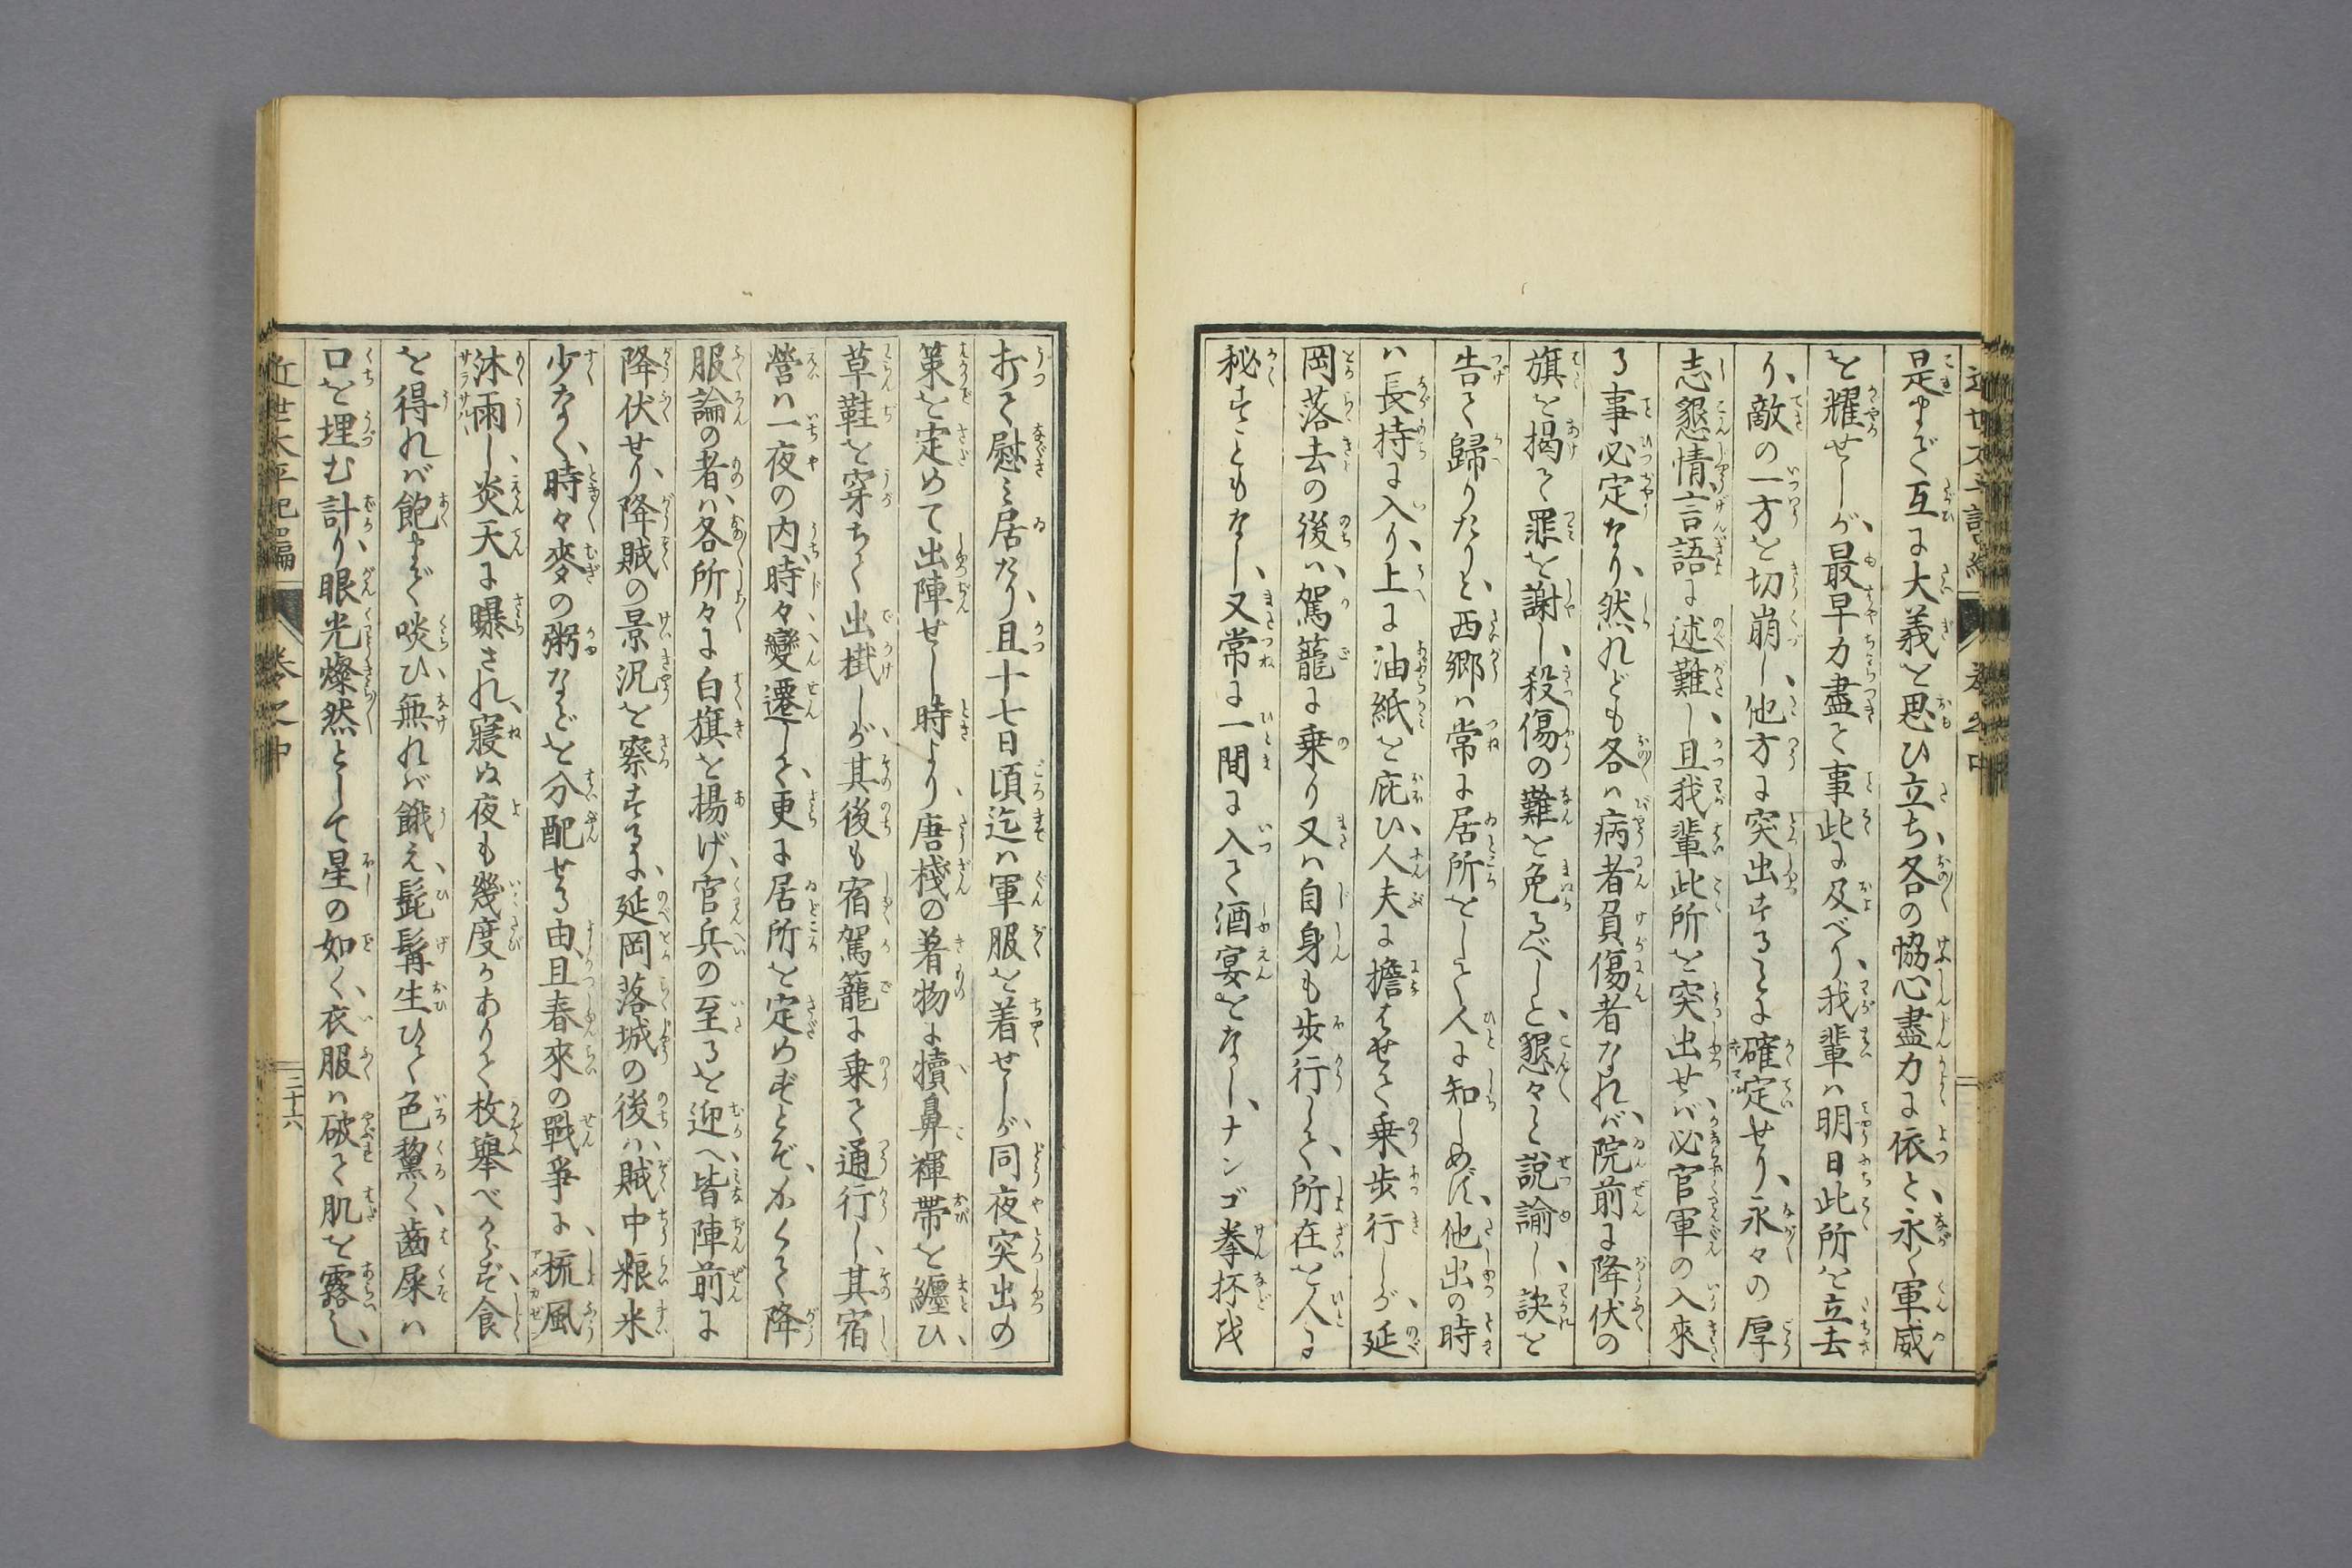 是まで互に大義を思ひ立ち、各の恊心盡力に依て、永く軍威
を耀せしが、最早力盡て事此に及べり、我輩ハ明日此所を立去
り、敵の一方を切崩し、他方に突出するに確定せり、永々の厚
志懇情、言語に述難し、且我輩此所を突出せバ、必官軍の入來
る事必定なり、然れども各ハ病者負傷者なれバ、院前に降伏の
旗を掲て罪を謝し、殺傷の難を免るべしと、懇々と説諭し、訣を
告て歸りたりと、西郷ハ常に居所をして人に知しめず、他出の時
ハ長持に入り、上に油紙を庇ひ、人夫に擔はせて乗歩行しが、延
岡落去の後ハ、駕籠に乗り又ハ自身も歩行して、所在を人に
秘すこともなし、又常に一間に入て酒宴をなし、ナンゴ拳抔を
打て慰み居たり、且十七日頃迄ハ軍服を着せしが、同夜突出の
策を定めて出陣せし時より、唐棧の着物に犢鼻褌帶を纒ひ、
草鞋を穿ちて出掛しが、其後も宿駕籠に乗て通行し、其宿
營ハ一夜の内、時々變遷して、更に居所を定めずとぞ、かくて降
服論の者ハ、各所々に白旗を揚げ、官兵の至るを迎へ、皆陣前に
降伏せり、降賊の景況を察するに、延岡落城の後ハ、賊中粮米
少なく、時々麥の粥などを分配せる由、且春來の戰爭に、梳風
沐雨し、炎天に曝され、寢ぬ夜も幾度かありて枚擧べからず、食
を得れバ飽まで啖ひ、無れバ餓え、髭髯生ひて色黧く、齒屎ハ
口を埋む計り、眼光燦然として星の如く、衣服ハ破て肌を露し、
近世太平記二編
卷之中
三十六